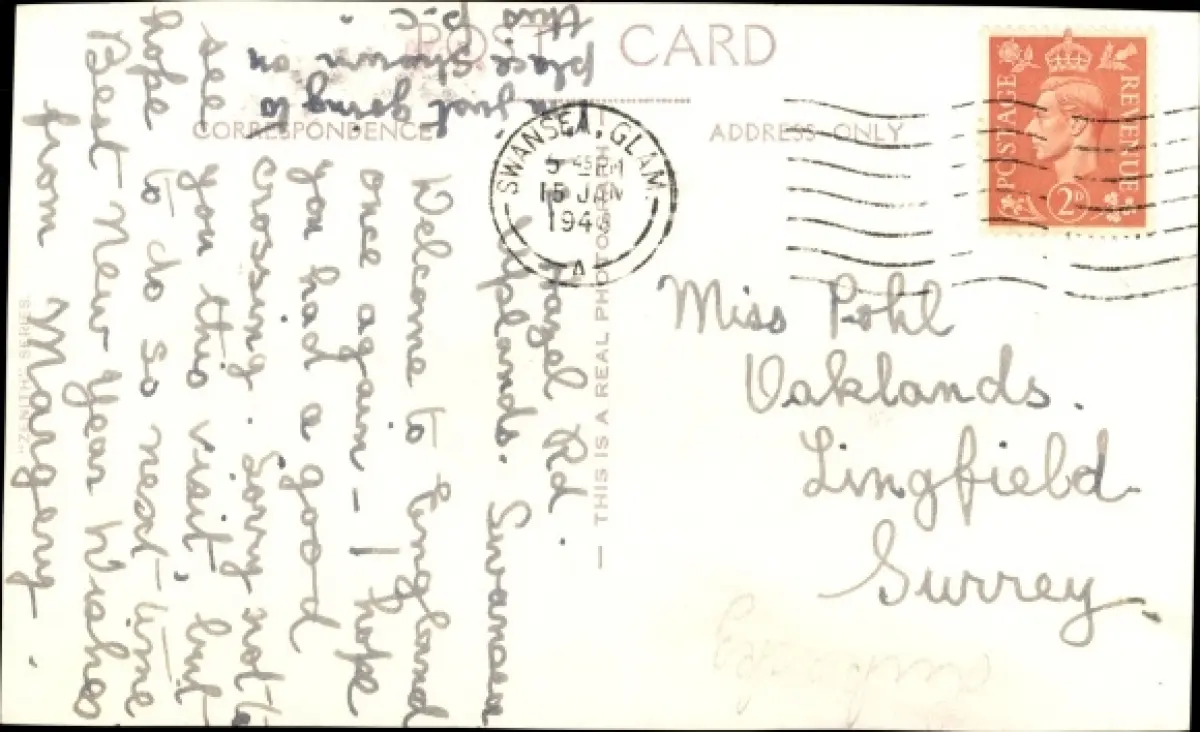 POST CARD
CORRESPONDENCE
ADDRESS ONLY
"ZENITH" SERIES.
— THIS IS A REAL PHOTO
SWANSEA, GLAM
5 45 PM
15 JAN
1948
A
POSTAGE
REVENUE
2D
Hazel Rd.
Uplands. Swansea
Welcome to England
once again – I hope
you had a good
crossing. Sorry not to
see you this visit, but
hope to do so next time
Best New Year Wishes
from Margery.
I'm just going to
place shown on
this p.c
Miss Pohl
Oaklands.
Lingfield
Surrey.